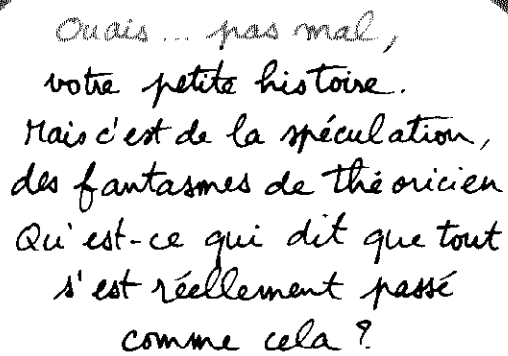 Ouais... pas mal,
votre petite histoire.
Mais c'est de la spéculation,
des fantasmes de théoricien
Qu'est-ce qui dit que tout
s'est réellement passé
comme cela ?